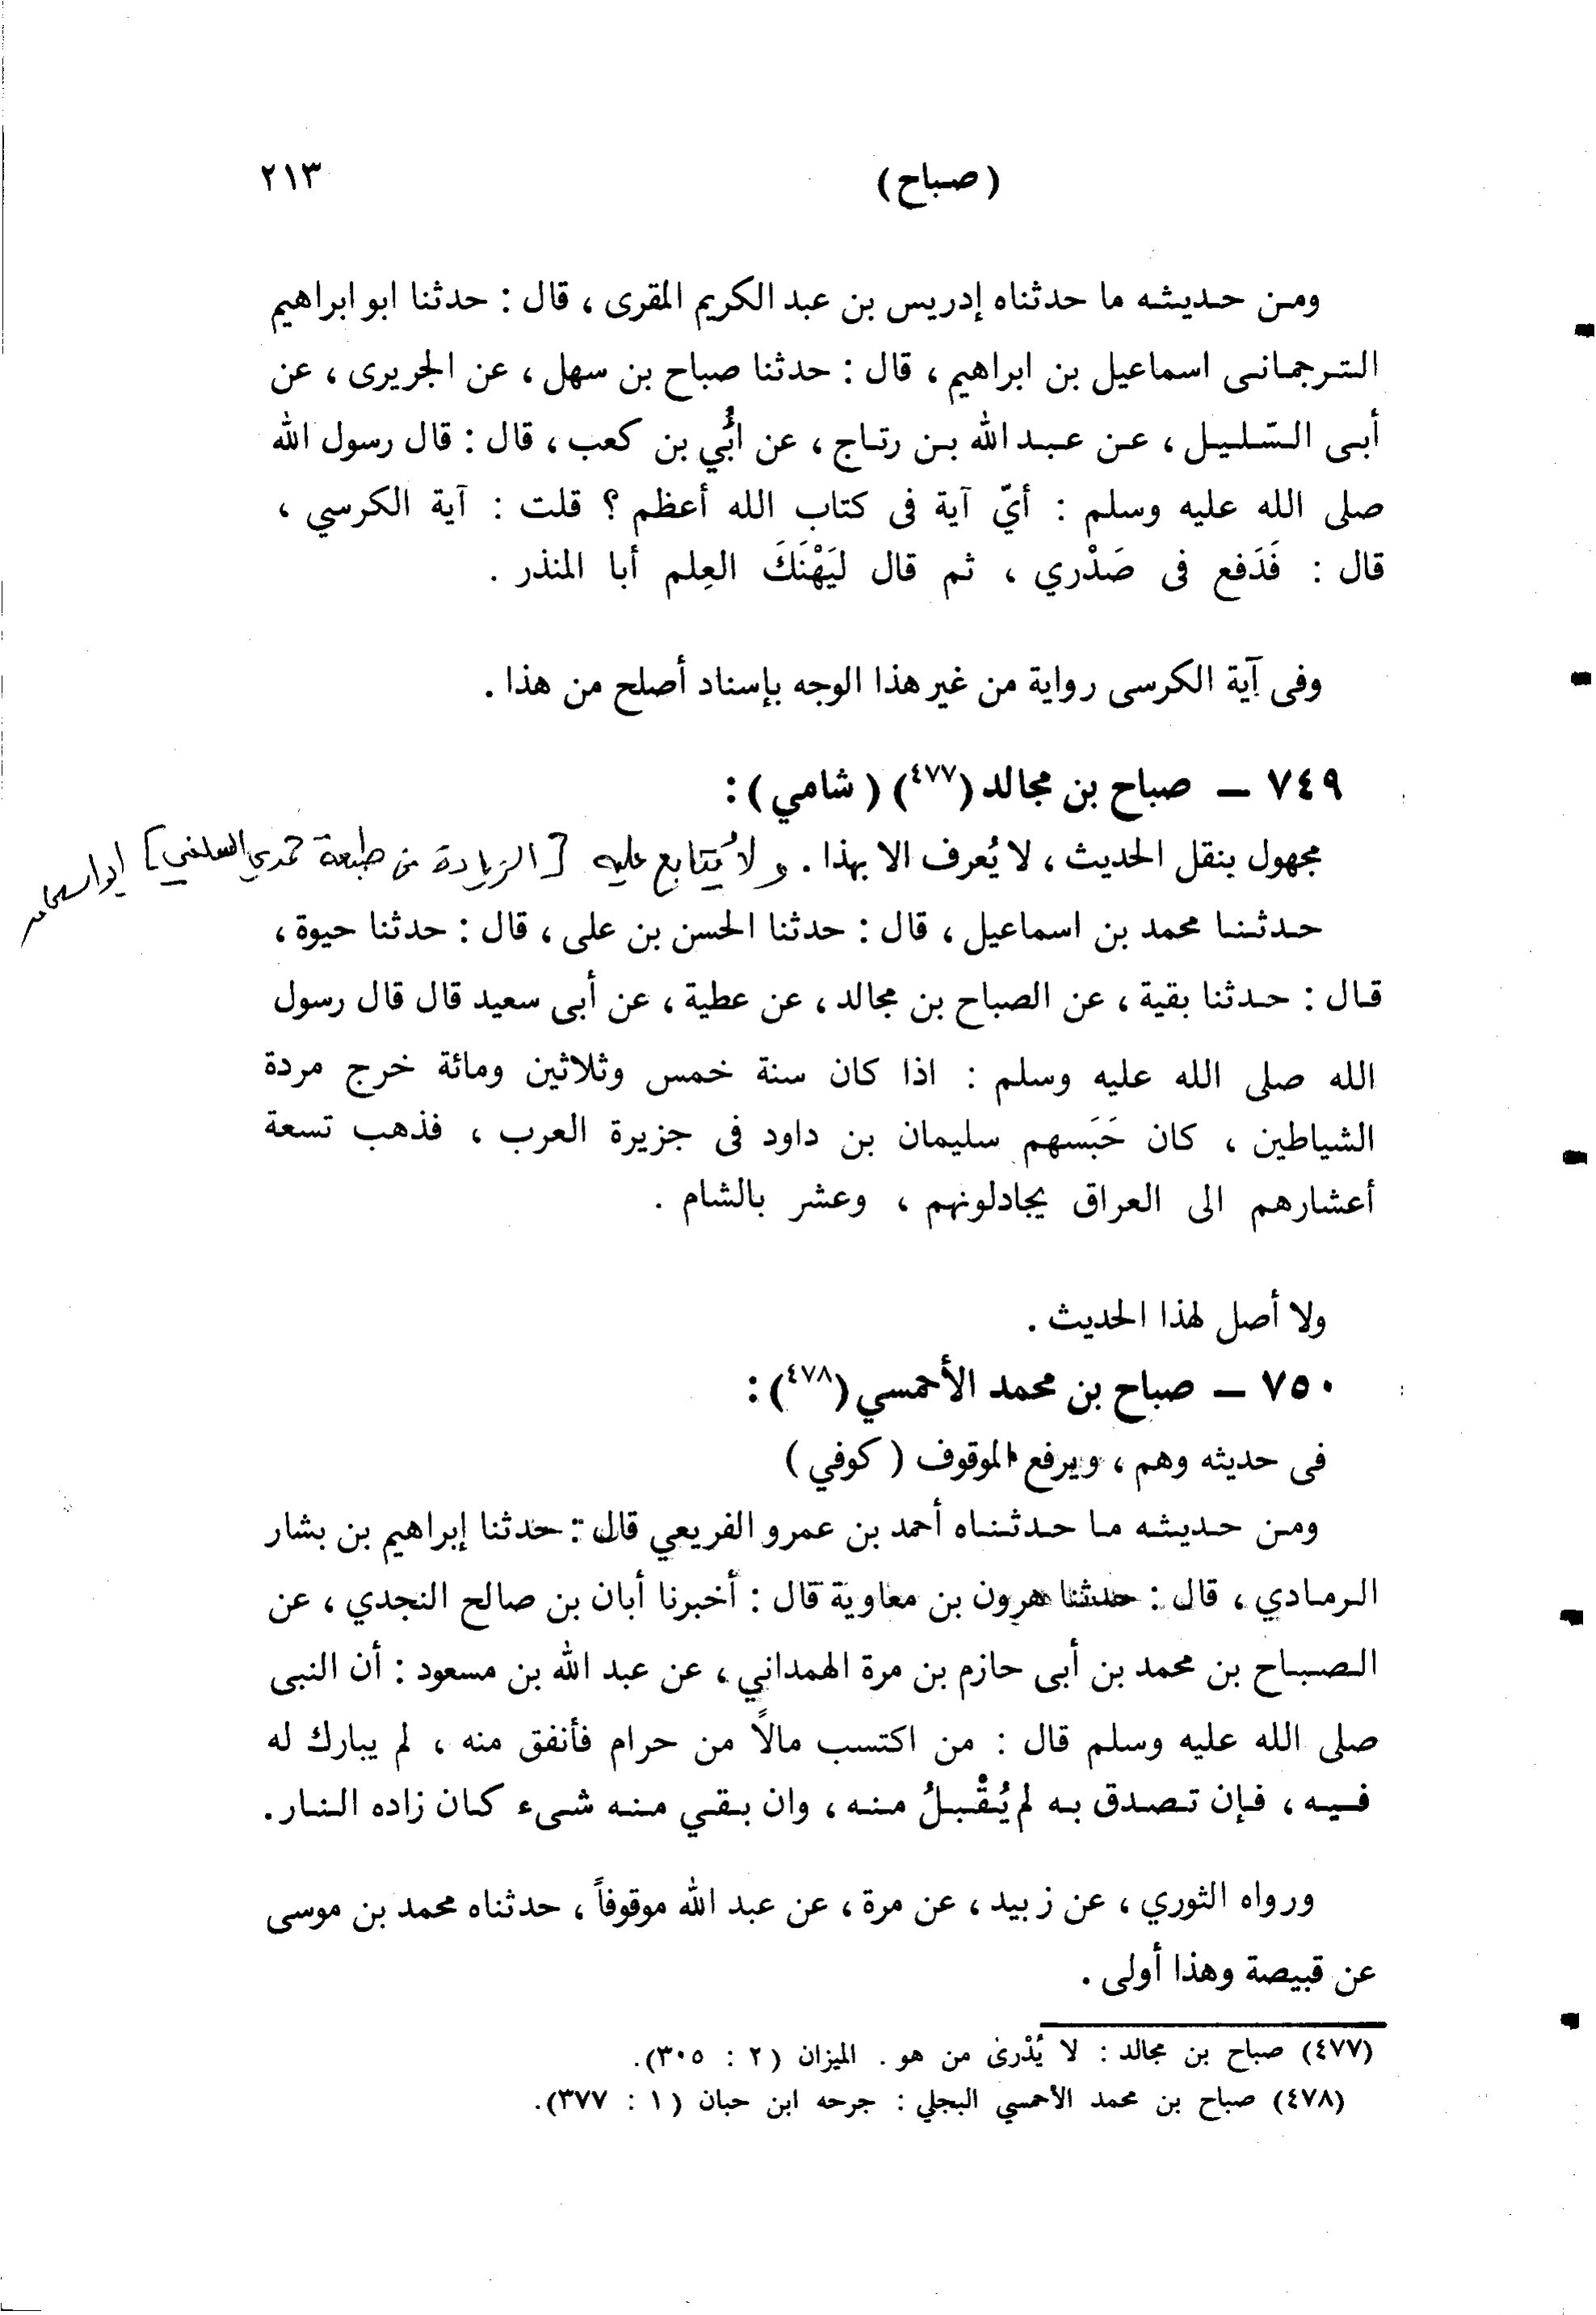 (صباح) ٢١٣
ومن حديثه ما حدثناه إدريس بن عبد الكريم المقرى ، قال : حدثنا ابو ابراهيم
الترجمانى اسماعيل بن ابراهيم ، قال : حدثنا صباح بن سهل ، عن الجريرى ، عن
أبى السّليل ، عن عبد الله بن رتاج ، عن ابُّي بن كعب ، قال : قال رسول الله
صلى الله عليه وسلم : أيّ آية فى كتاب الله أعظم ؟ قلت : آية الكرسي ،
قال : فَدَفع فى صَدْري ، ثم قال ليَهْنَكَ العِلم أبا المنذر .
وفى آية الكرسى رواية من غير هذا الوجه بإسناد أصلح من هذا .
٧٤٩ — صباح بن مجالد (٤٧٧) ( شامي ) :
مجهول بنقل الحديث ، لا يُعرف الا بهذا . ولا يُتابع عليه [ الزيادة من طبعة حمدي السلفي ]
حدثنا محمد بن اسماعيل ، قال : حدثنا الحسن بن على ، قال : حدثنا حيوة ،
قال : حدثنا بقية ، عن الصباح بن مجالد ، عن عطية ، عن أبى سعيد قال قال رسول
الله صلى الله عليه وسلم : اذا كان سنة خمس وثلاثين ومائة خرج مردة
الشياطين ، كان حَبَسهم سليمان بن داود فى جزيرة العرب ، فذهب تسعة
أعشارهم الى العراق يجادلونهم ، وعشر بالشام .
ولا أصل لهذا الحديث .
٧٥٠ — صباح بن محمد الأحمسي (٤٧٨) :
فى حديثه وهم ، ويرفع الموقوف ( كوفي )
ومن حديثه ما حدثناه أحمد بن عمرو الفريعي قال : حدثنا إبراهيم بن بشار
الرمادي ، قال : حدثنا هرون بن معاوية قال : أخبرنا أبان بن صالح النجدي ، عن
الصباح بن محمد بن أبى حازم بن مرة الهمداني ، عن عبد الله بن مسعود : أن النبى
صلى الله عليه وسلم قال : من اكتسب مالاً من حرام فأنفق منه ، لم يبارك له
فيه ، فإن تصدق به لم يُقْبلُ منه ، وان بقي منه شىء كان زاده النار .
ورواه الثوري ، عن زبيد ، عن مرة ، عن عبد الله موقوفاً ، حدثناه محمد بن موسى
عن قبيصة وهذا أولى .
(٤٧٧) صباح بن مجالد : لا يُدْرىٰ من هو . الميزان (٢ : ٣٠٥).
(٤٧٨) صباح بن محمد الأحمسي البجلي : جرحه ابن حبان (١ : ٣٧٧).